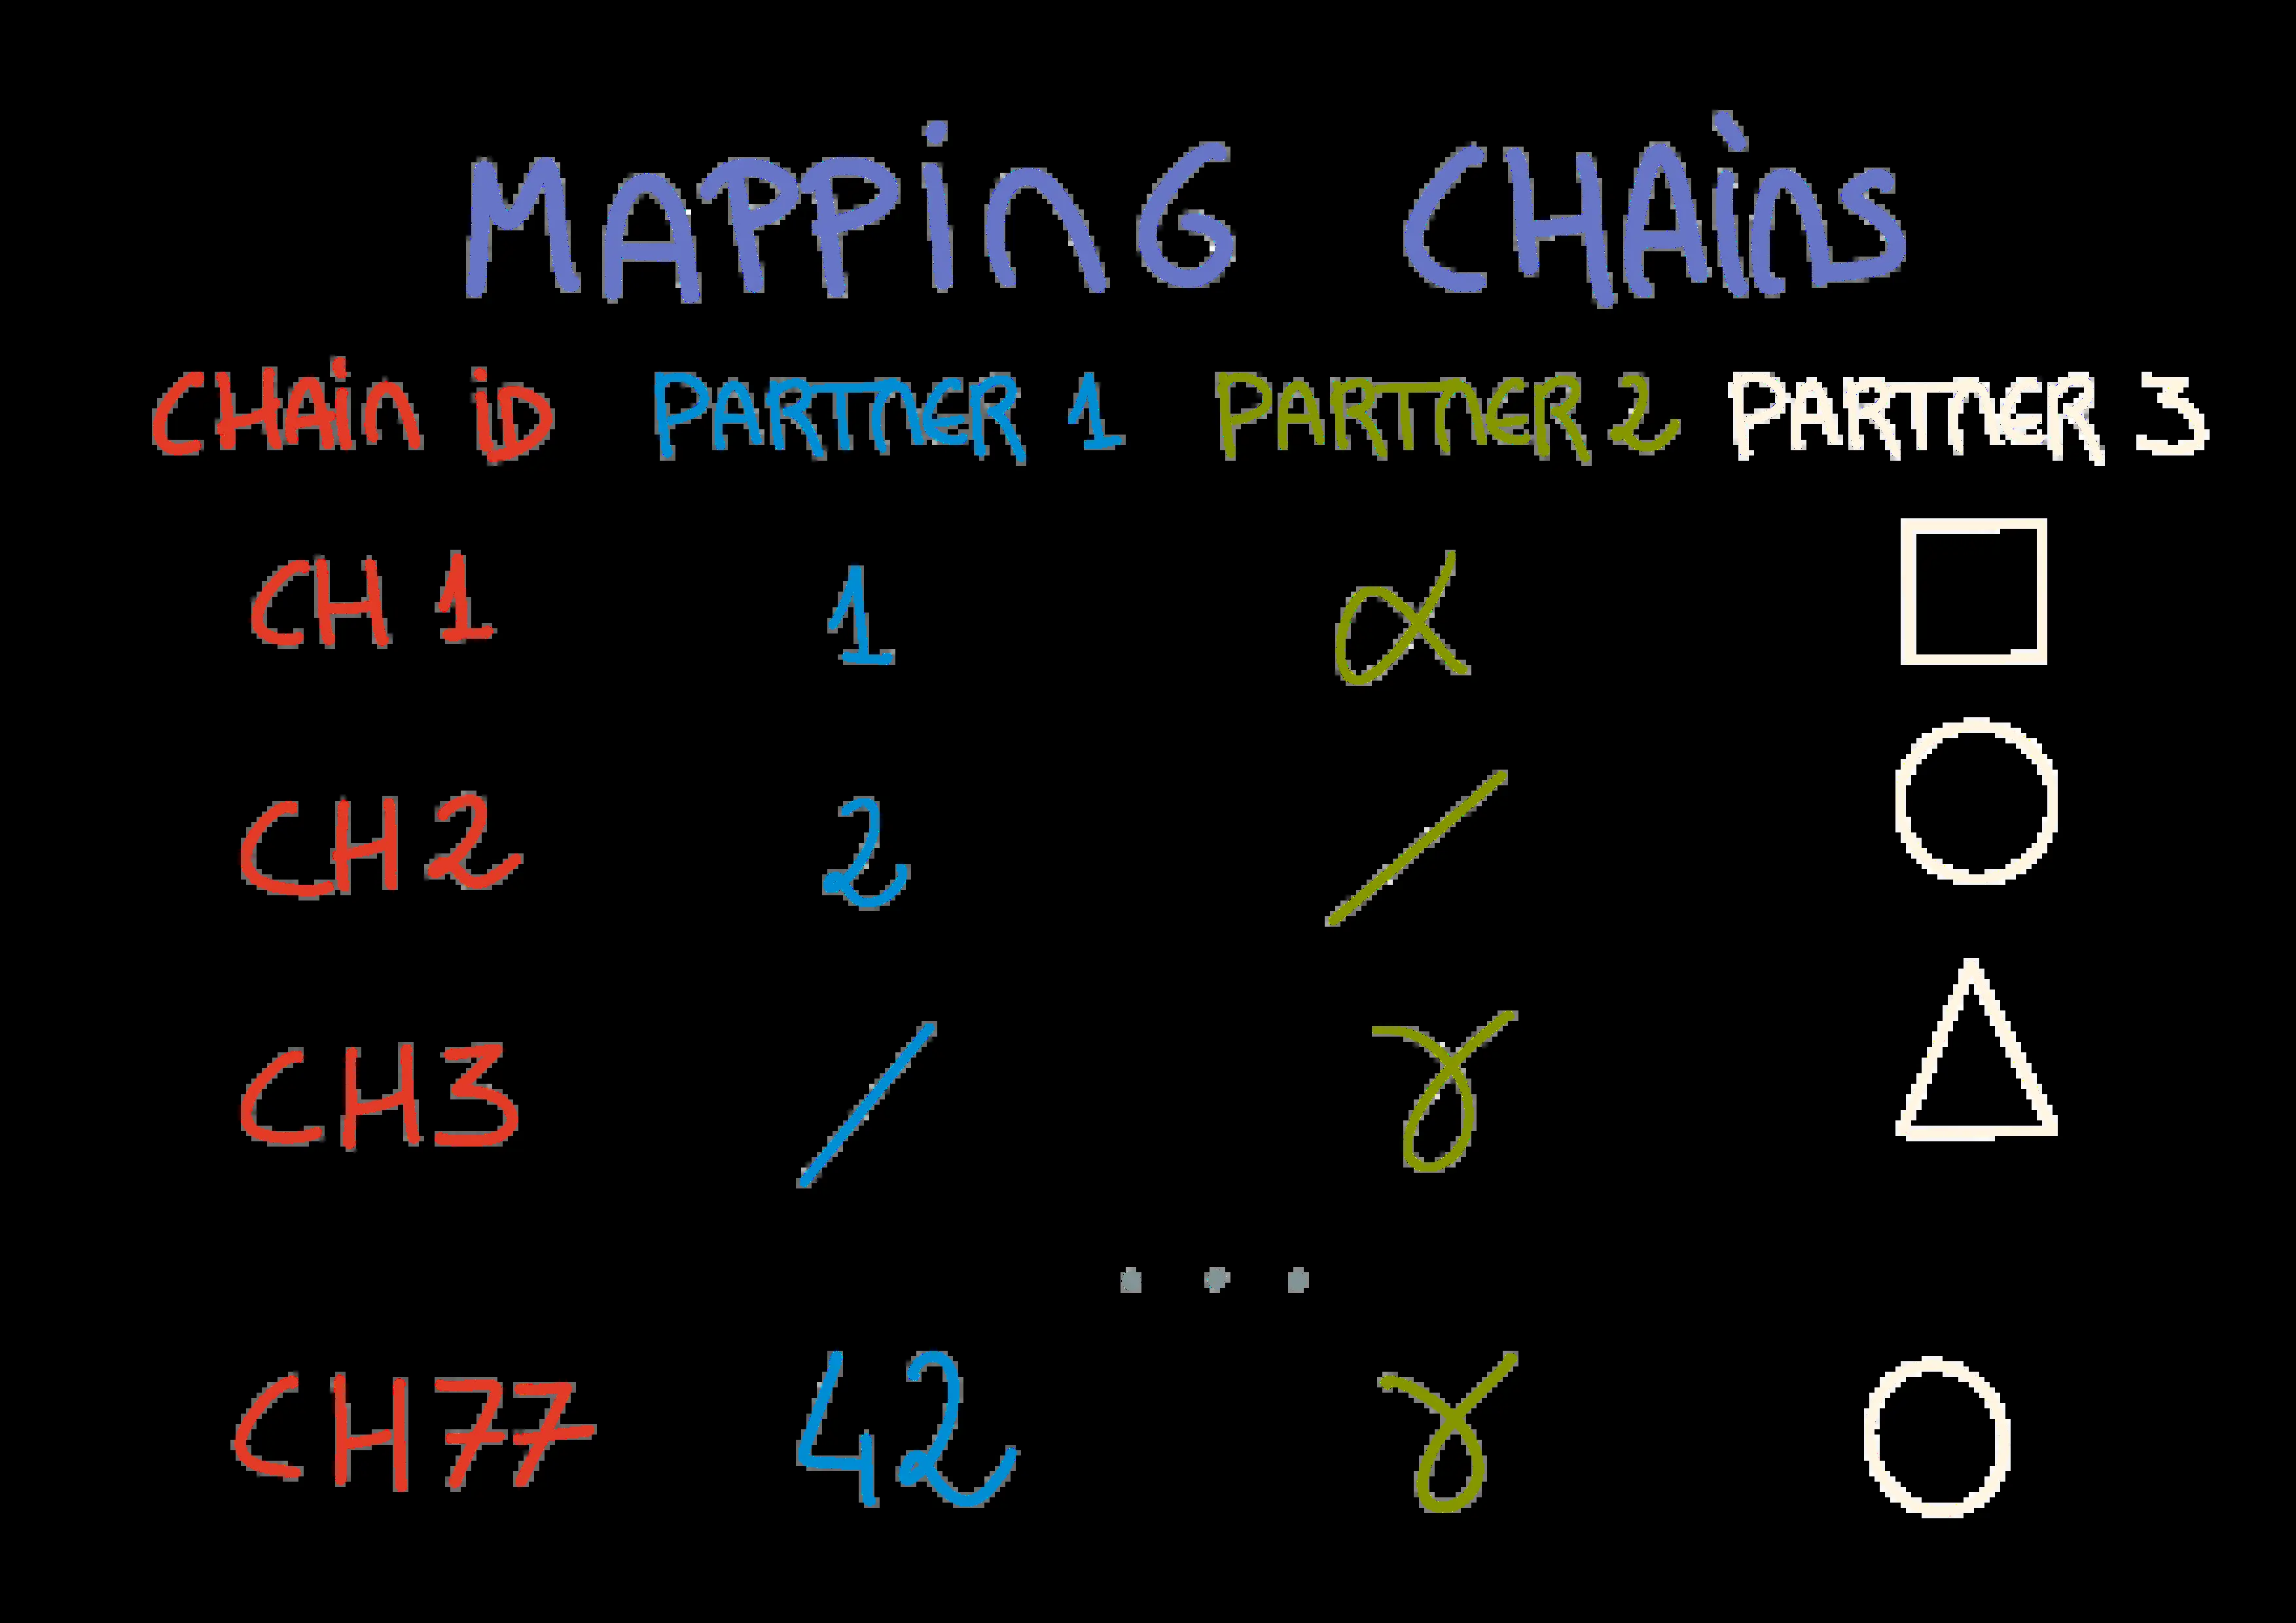 MAPPiNG CHAiNS
CHAiN iD PARTNER 1 PARTNER 2 PARTNER 3
CH 1 1 α □
CH 2 2 / ○
CH3 / γ △
...
CH77 42 γ ○